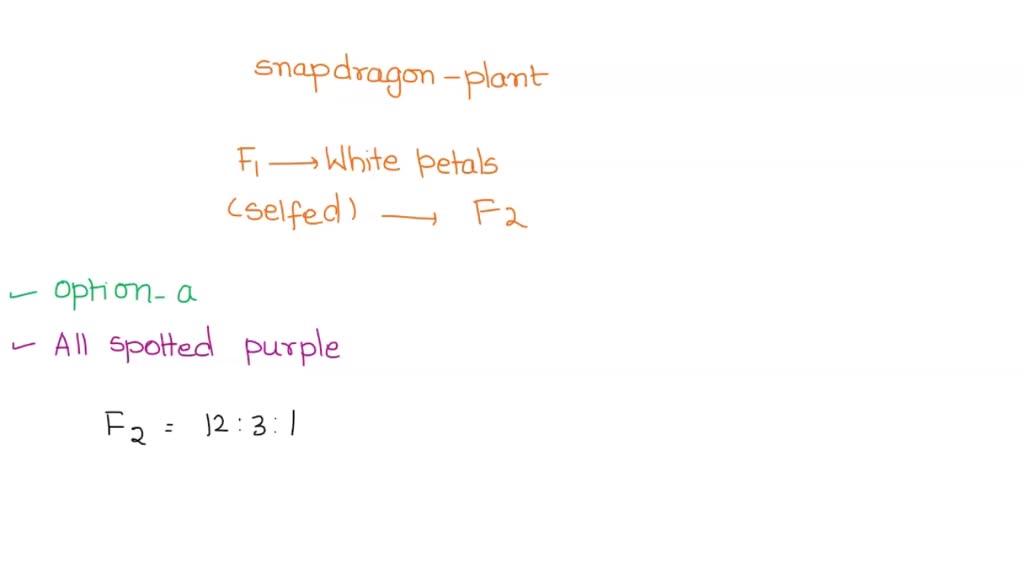 snapdragon - plant
F1 → White petals
(selfed) → F2
✓ option - a
✓ All spotted purple
F2 = 12 : 3 : 1